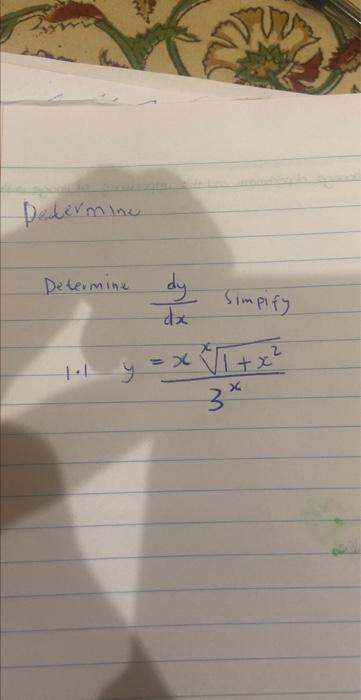 Determine
Determine dy/dx Simpify
1.1 y = x ˣ√(1 + x²) / 3ˣ